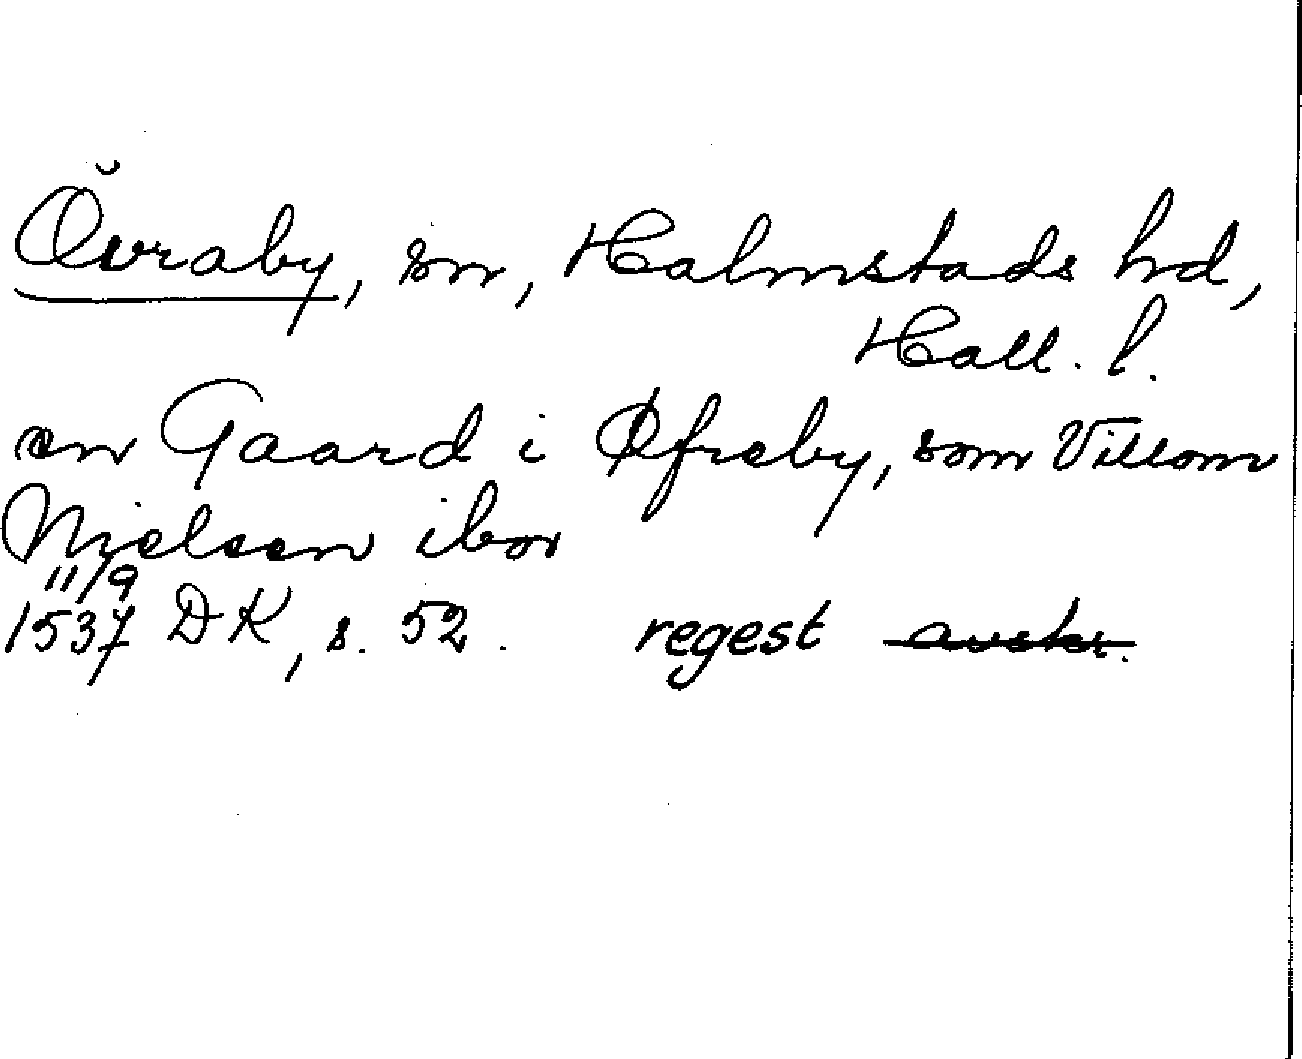 Övraby, sn, Halmstads hd,
Hall. l.
en Gaard i Øfreby, som Villom
Nielsen ibor
11/9
1537 DK, s. 52. regest avskr.